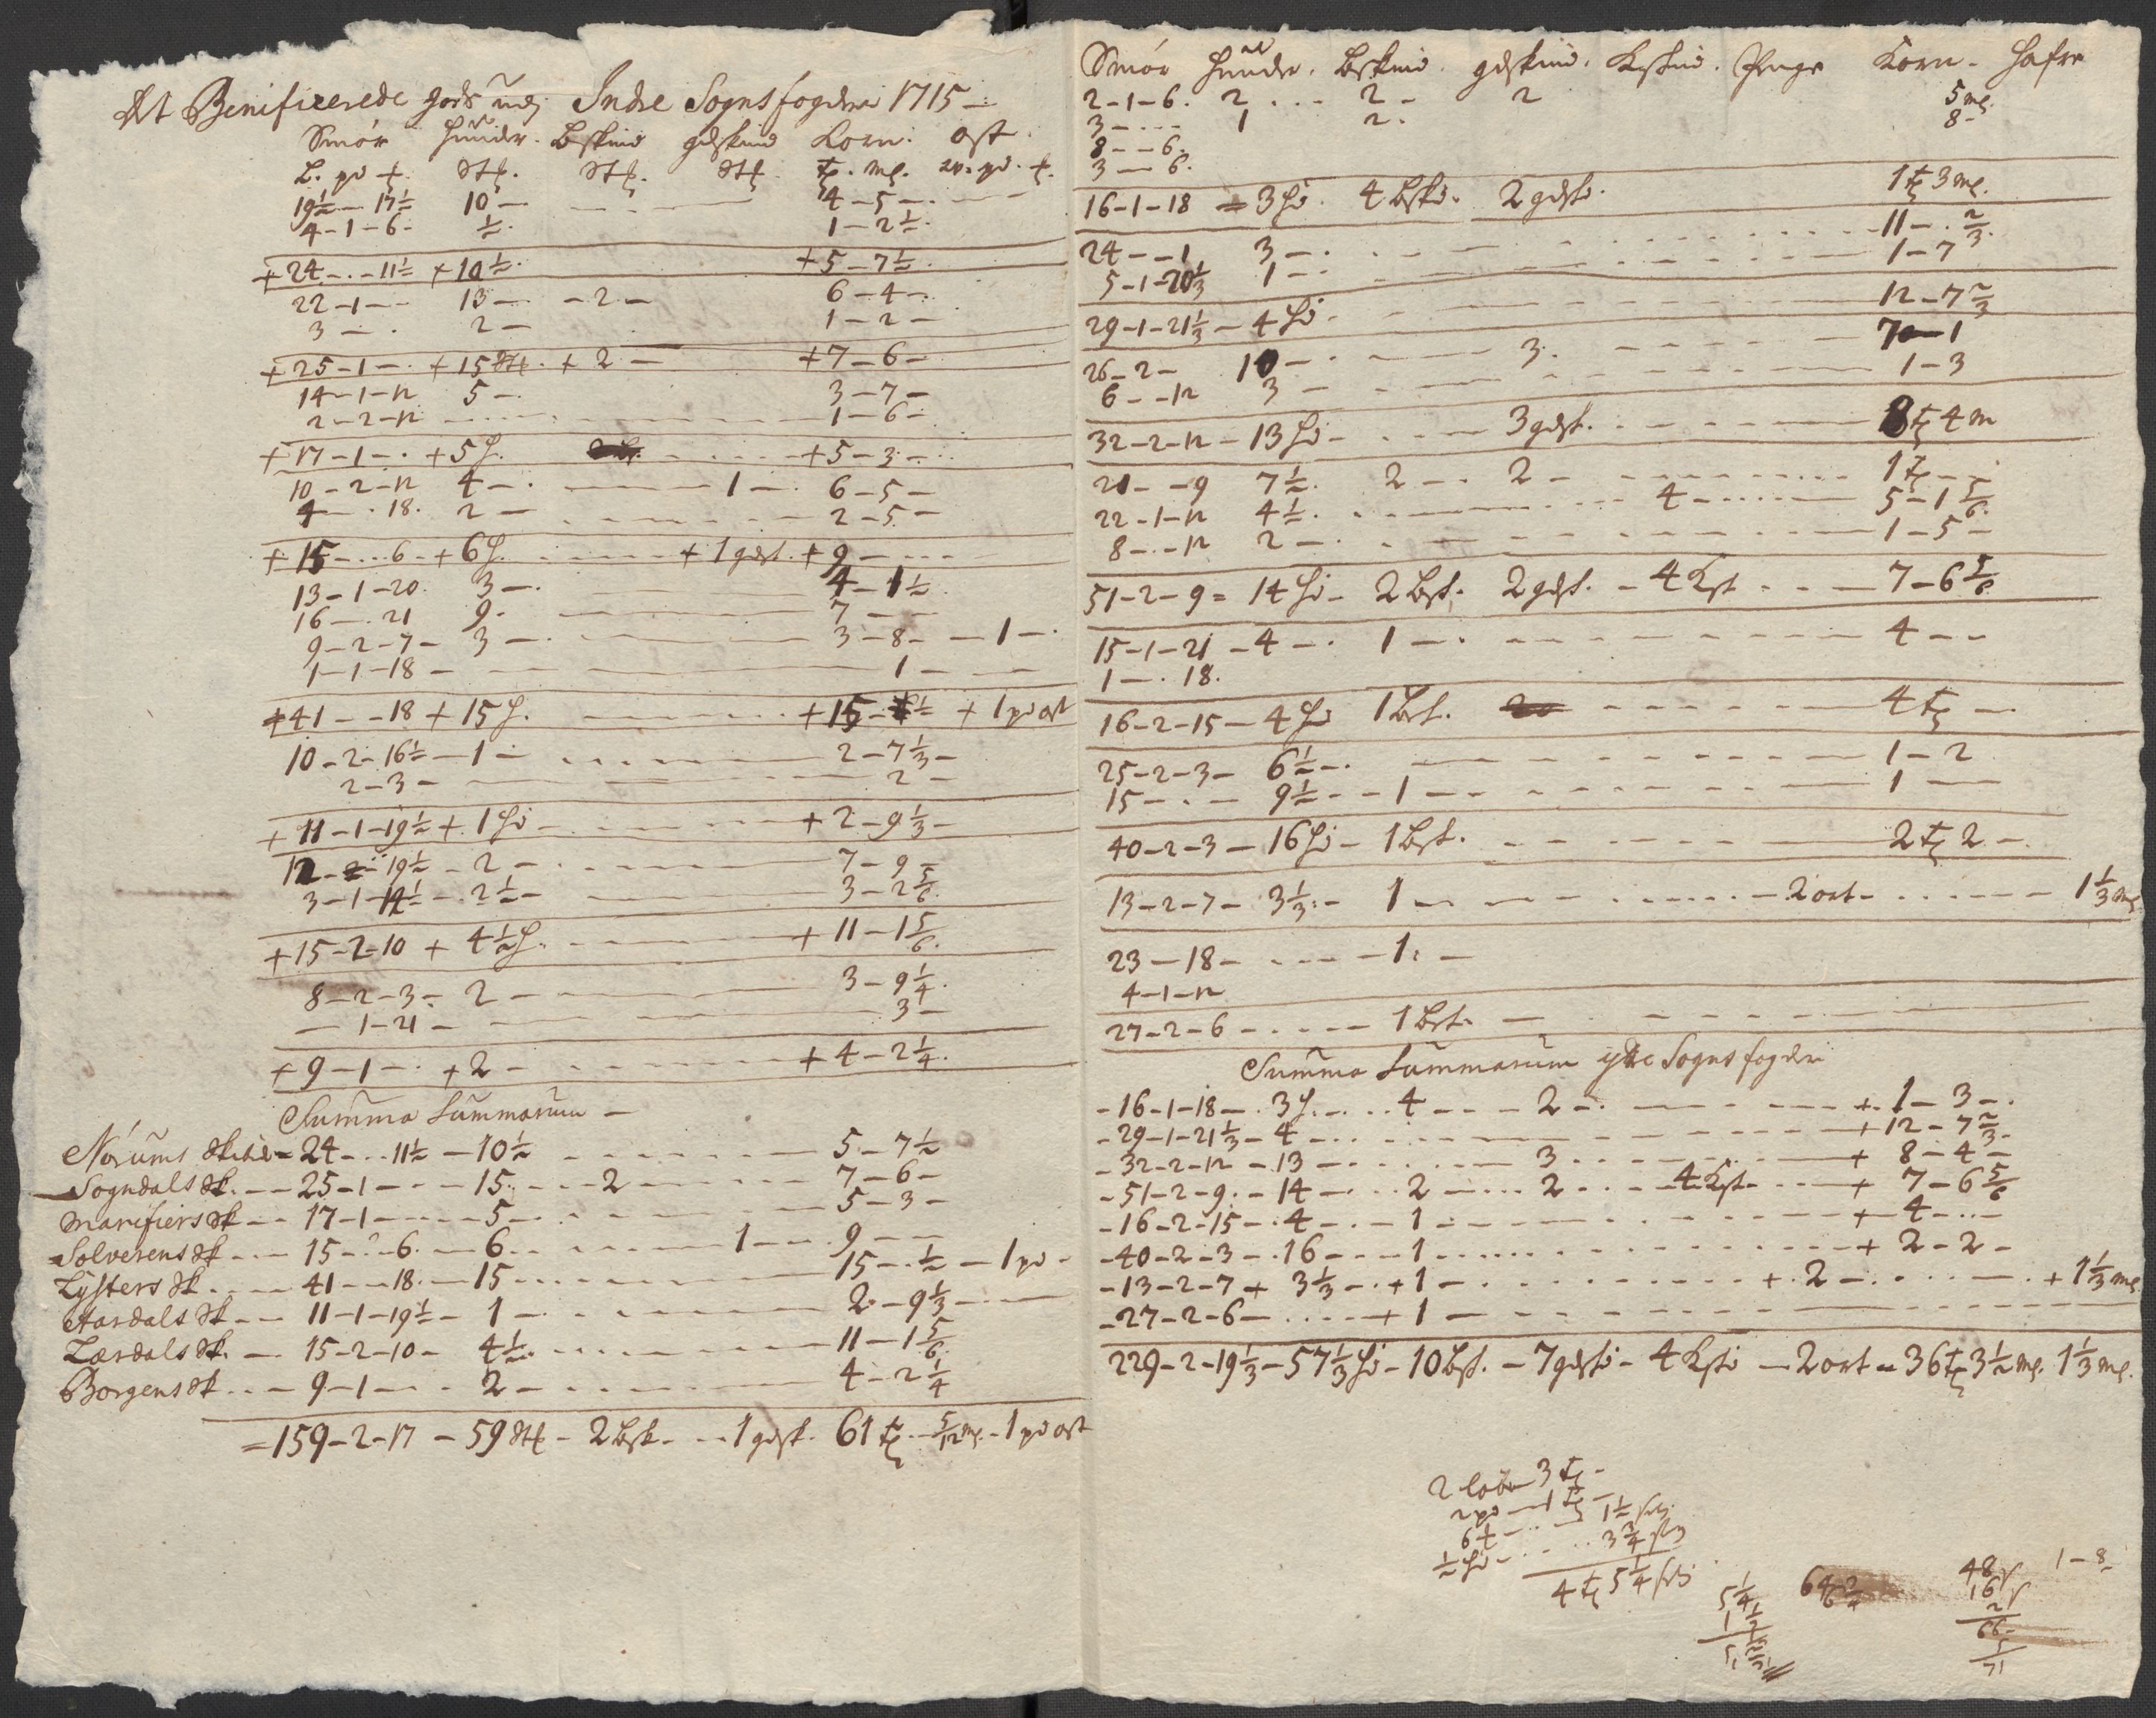 Benificerede gods udj Indre Sognsfogderi 1715
Smör huuder. Bskind gdskind Korn. ost
19½ - 17½ 10 - 4 - 5 -
4 - 1 - 6 - ½. 1 - 2½.
+ 24 - - 11½ + 10½. + 5 - 7½.
22 - 1 - 13 - - 2 - 6 - 4 -
3 - . 2 - 1 - 2 -
+ 25 - 1 - . + 15 + 2 - + 7 - 6 -
14 - 1 - 12 5 - 3 - 7 -
2 - 2 - 12 1 - 6 -
+ 17 - 1 - . + 5 h. + 5 - 3 -
10 - 2 - 12 4 - . 1 - . 6 - 5 -
4 - . 18. 2 - 2 - 5 -
+ 15 - . . 6 - + 6 h. + 1 gdsk. + 9 -
13 - 1 - 20. 3 - . 4 - 1½
16 - . 21 9 - 7 -
9 - 2 - 7 - 3 - . 3 - 8 - - 1 - .
1 - 1 - 18 - 1 -
+ 41 - - 18 + 15 h. + 15 - ½ + 1 pd ost
10 - 2 - 16½ - 1 - 2 - 7⅓ -
2 - 3 - 2 -
+ 11 - 1 - 19½ + 1 hd - + 2 - 9⅓ -
12 - 19½ - 2 - 7 - 9 -
3 - 1 - 14½ - 2½ - 3 - 2⅚.
+ 15 - 2 - 10 + 4½ h. + 11 - 1⅚.
8 - 2 - 3 - 2 - 3 - 9¼.
- 1 - 21 - 3 -
+ 9 - 1 - . + 2 - + 4 - 2¼.
Summa Summarum -
Norums - 24 - . . 11½ - 10½ 5 - 7½
Sogndals sk. - 25 - 1 - 15. - 2 7 - 6 -
Marifiers sk - 17 - 1 - 5 - 5 - 3 -
Solverens sk - 15 - 6. - 6 1 - 9 -
Lysters sk - 41 - 18. - 15 15 - . ½ - 1 pd -
Aardals sk - 11 - 1 - 19½ - 1 - 2 - 9⅓ -
Lærdals sk. - 15 - 2 - 10 - 4½. 11 - 1⅚.
Borgens sk - 9 - 1 - 2 - 4 - 2¼
= 159 - 2 - 17 - 59 - 2 bsk - 1 gdsk. 61 - 5/12 mg. - 1 pd ost
Smör huudr. Bskind. gdskind. Kskind. Penge Korn - hafre
2 - 1 - 6. 2 . . - 2 - 2 5 mg.
3 - . . 1 2. 8 -
8 - - 6.
3 - 6.
16 - 1 - 18 = 3 hd. 4 bskd. 2 gdsk. 1 3 mg.
24 - - 1 3 - . 11 - . ⅔.
5 - 1 - 20⅓ 1 - 1 - 7
29 - 1 - 21⅓ - 4 hd - 12 - 7⅔
26 - 2 - 10 - . 3. 7 - 1
6 - - 12 3 - 1 - 3
32 - 2 - 12 - 13 hd - 3 gdsk. 8 4 m
21 - - 9 7½. 2 - . 2 - 1
22 - 1 - 12 4½. 4 - 5 - 1⅚.
8 - . - 12 2 - . 1 - 5 -
51 - 2 - 9 = 14 hd - 2 bsk. 2 gdsk. - 4 Ksk 7 - 6⅚
15 - 1 - 21 - 4 - . 1 - . 4 - -
1 - . 18.
16 - 2 - 15 - 4 hd 1 bsk. 4 - .
25 - 2 - 3 - 6½ - . 1 - 2
15 - . - 9½ - - 1 - 1 -
40 - 2 - 3 - 16 hd - 1 bsk. 2 2 -
13 - 2 - 7 - 3⅓ - 1 - 2 ort - 1⅓ mg
23 - 18 - 1. -
4 - 1 - 12
27 - 2 - 6 - 1 bsk.
Summa Summarum ytre Sogns fogderi
- 16 - 1 - 18 - . 3 h. 4 - 2 - . + 1 - 3 - .
- 29 - 1 - 21⅓ - 4 + 12 - 7⅔ -
- 32 - 2 - 12 - 13 - 3 + 8 - 4 -
- 51 - 2 - 9. - 14 - 2 - 2 - 4 Ksk - + 7 - 6⅚
- 16 - 2 - 15 - . 4 - . - 1 + 4 -
- 40 - 2 - 3 - . 16 - 1 + 2 - 2 -
- 13 - 2 - 7 + 3⅓ - . + 1 - + 2 - + 1⅓ mg
- 27 - 2 - 6 - + 1 -
229 - 2 - 19⅓ - 57⅓ hd - 10 bsk. - 7 gdsk - 4 Ksk - 2 ort - 36 3½ mg. 1⅓ mg.
2 3 -
2 pd - 1 -
1½
6
3¾
½ hd -
4 5¼
5¼
1
64
48
16
2
66
5
71
1 - 8